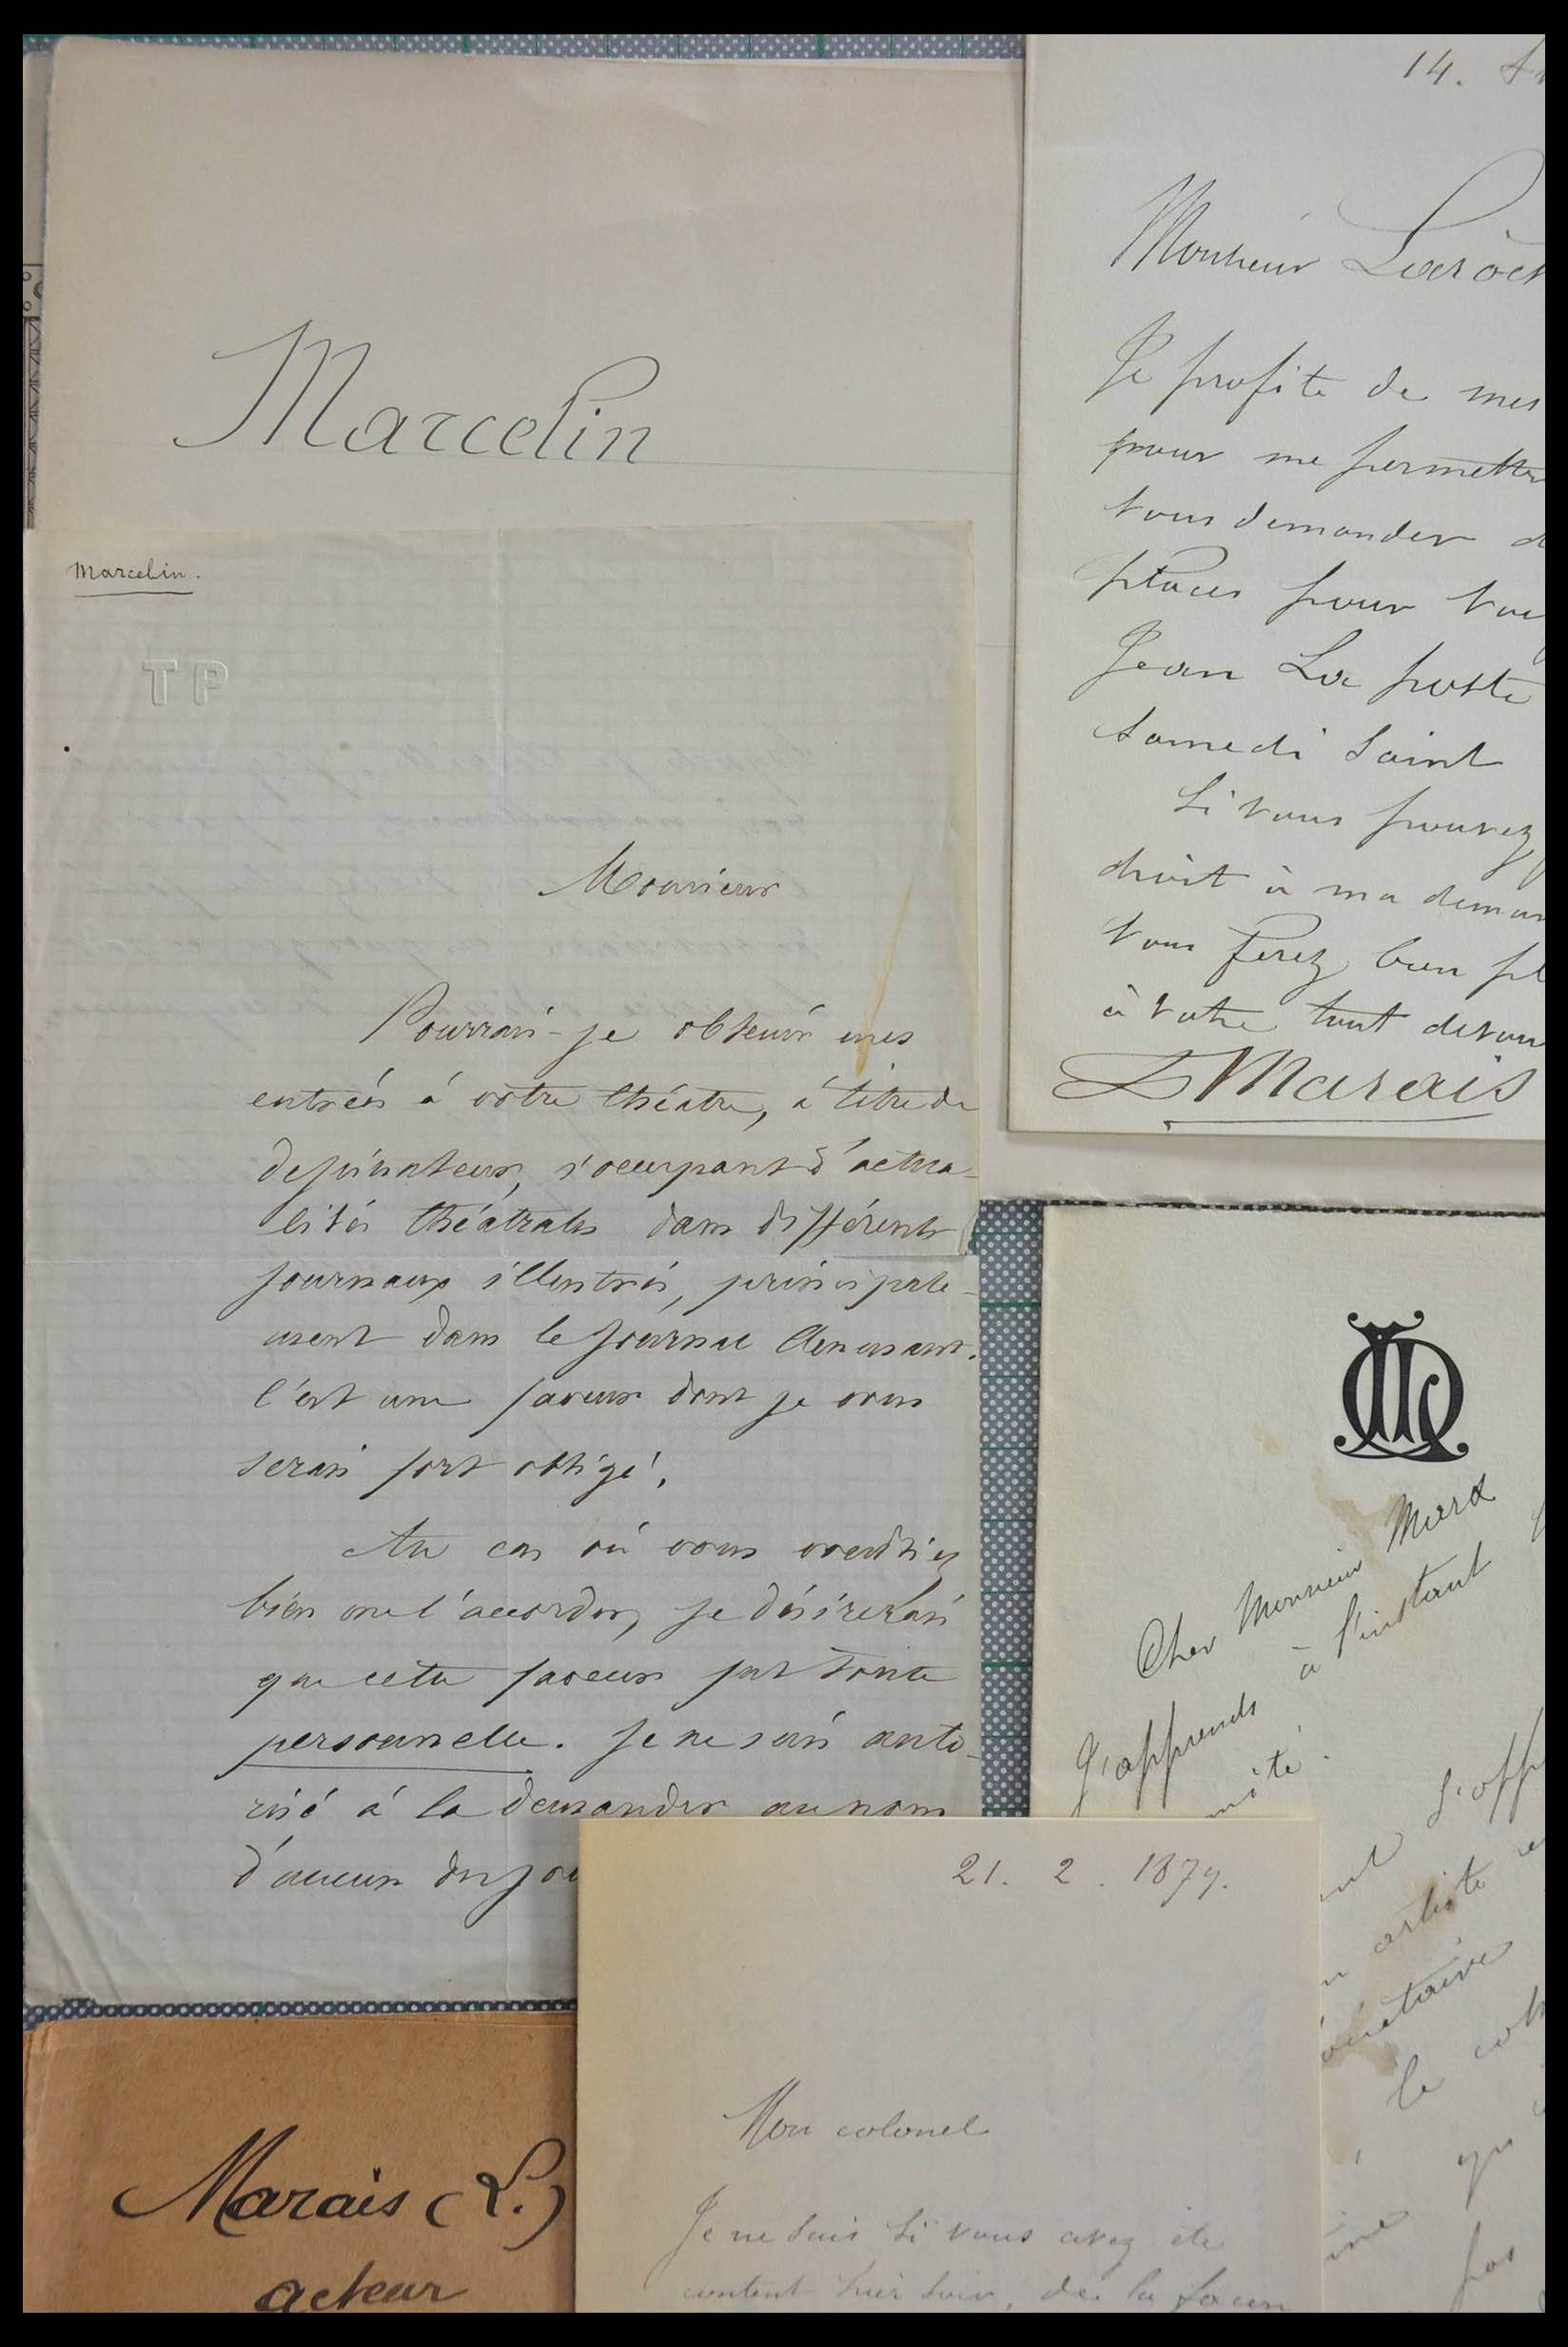 Marcelin
Marcelin.
TP
Monsieur
Pourrais-je obtenir mes
entrées à votre théâtre, à titre de
dessinateur, s'occupant d'actua-
lités théâtrales dans différents
journaux illustrés, principale-
ment dans le Journal Amusant.
C'est une faveur dont je vous
serais fort obligé.
Au cas où vous voudriez
bien me l'accorder, je désirerais
que cette faveur fut toute
personnelle. Je ne suis auto-
risé à la demander au nom
d'aucun des jou
14.
Monsieur Laroch
Je profite de mes
pour me permettre
vous demander d
places pour voi
Jean La poste
Samedi Saint
Si vous pouvez
droit à ma deman
vous ferez bien pl
à votre tout devou
L Marais
Cher Monsieur Marx
J'apprends à l'instant
mité.
ent s'off
n artiste
le
qu
pas
21. 2. 1879.
Mon colonel
Je ne sais si vous avez été
content hier soir, de la façon
Marais (L.)
acteur